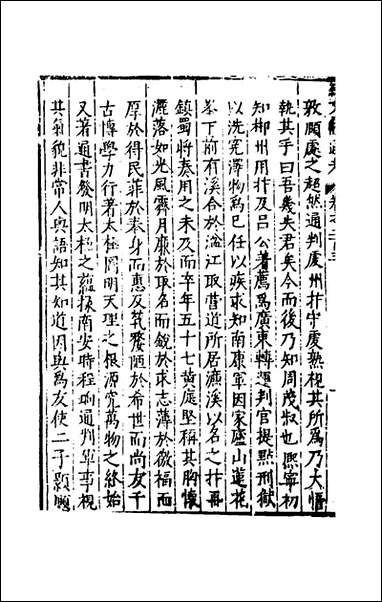 敦頤處之超然通判虔州抃守虔熟視其所爲乃大悟
執其手曰吾幾失君矣今而後乃知周茂叔也熙寧初
知郴州用抃及呂公著薦爲廣東轉運判官提點刑獄
以洗冤澤物爲己任以疾求知南康軍因家廬山蓮花
峯下前有溪合於湓江取營道所居濂溪以名之抃再
鎮蜀將奏用之未及而卒年五十七黄庭堅稱其胸懷
灑落如光風霽月廉於取名而銳於求志薄於徼福而
厚於得民菲於奉身而惠及㷀嫠陋於希世而尚友千
古博學力行著太極圖明天理之根源究萬物之終始
又著通書發明太極之蘊掾南安時程珦通判軍事視
其氣貌非常人與語知其知道因與爲友使二子顥頤